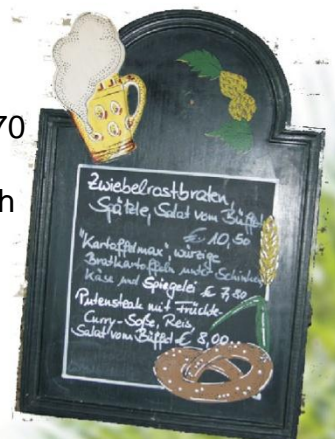 70
h
Zwiebelrostbraten,
Spätzle, Salat vom Büffet
€ 10,50
"Kartoffelmax", würzige
Bratkartoffeln unter Schinken
Käse und Spiegelei € 7,80
Putensteak mit Früchte-
Curry-Soße, Reis,
Salat vom Büffet € 8,00